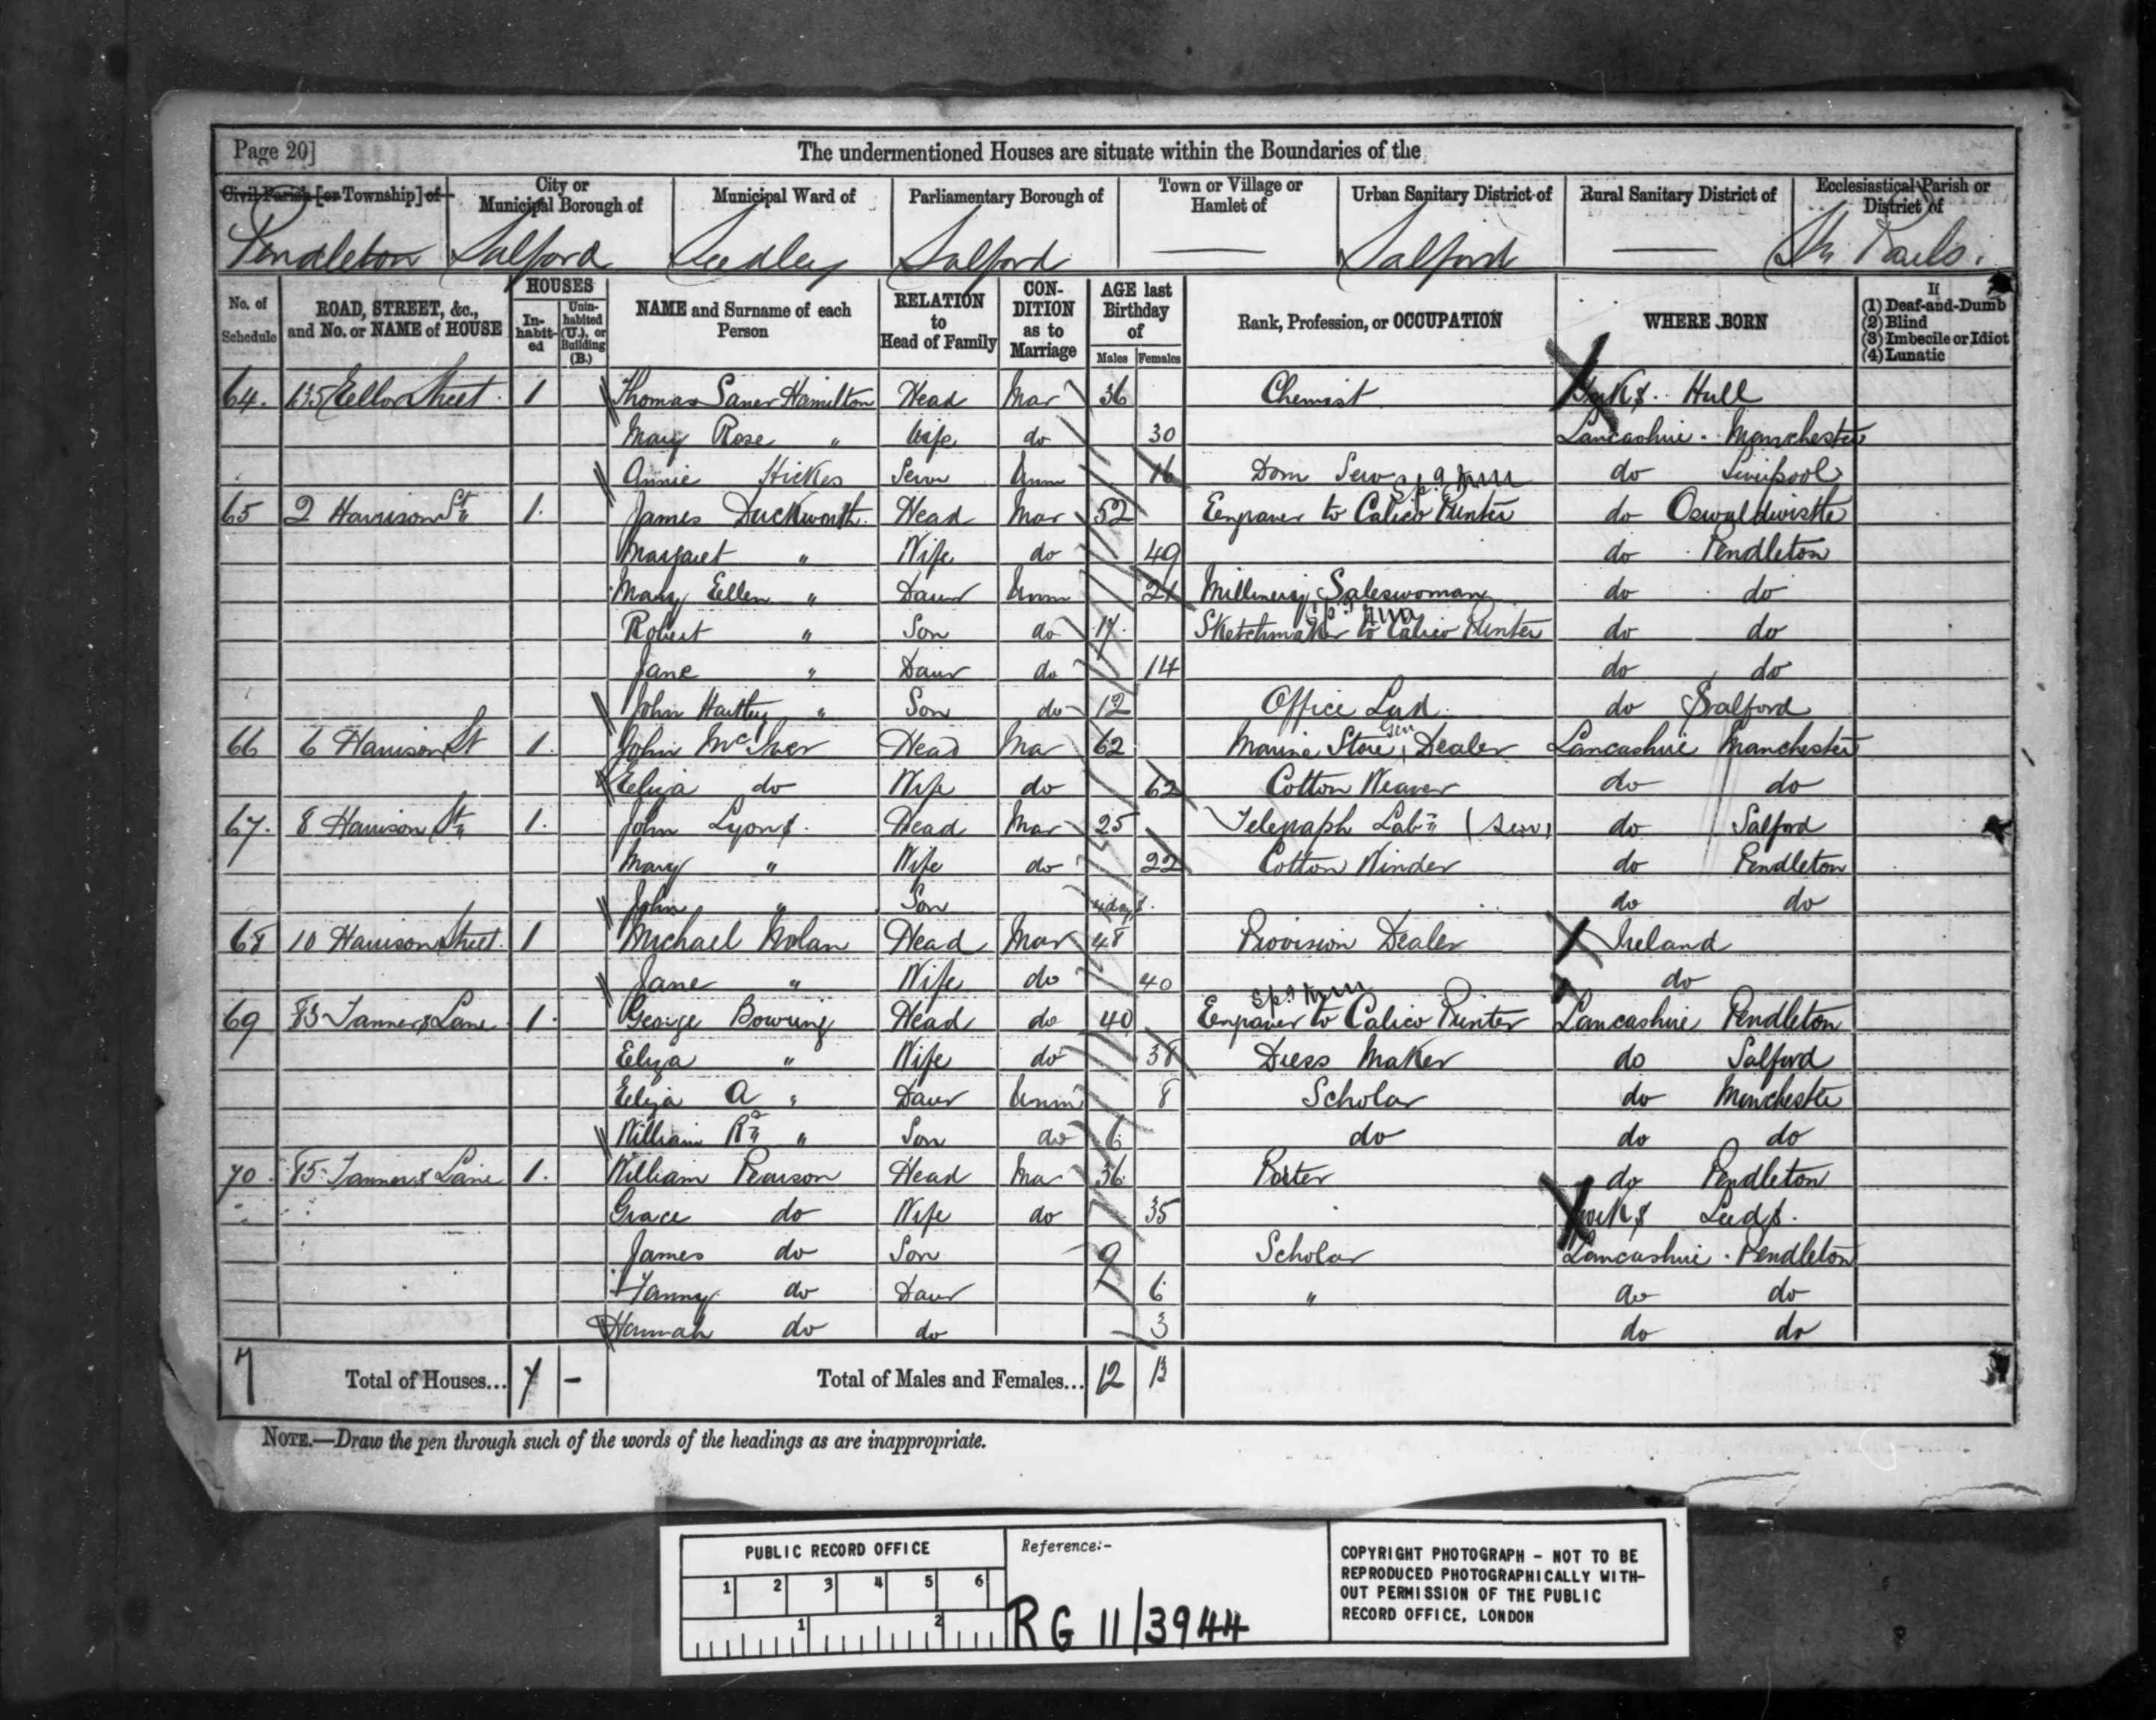 Page 20]
The undermentioned Houses are situate within the Boundaries of the
Civil Parish [or Township] of City or Municipal Borough of Municipal Ward of Parliamentary Borough of Town or Village or Hamlet of Urban Sanitary District of Rural Sanitary District of Ecclesiastical Parish or District of
Pendleton Salford Seedley Salford — Salford — St. Pauls.
No. of Schedule ROAD, STREET, &c., and No. or NAME of HOUSE HOUSES Inhabited Uninhabited (U.), or Building (B.) NAME and Surname of each Person RELATION to Head of Family CONDITION as to Marriage AGE last Birthday of Males Females Rank, Profession, or OCCUPATION WHERE BORN If (1) Deaf-and-Dumb (2) Blind (3) Imbecile or Idiot (4) Lunatic
64. 135 Ellor Street. 1 Thomas Saner Hamilton Head Mar 36 Chemist Yorks. Hull
Mary Rose " Wife do 30 Lancashire. Manchester
Annie Hickes Serv Unm 16 Dom Serv do Liverpool
65 2 Harrison St 1. James Duckworth. Head Mar 52 Engraver to Calico Printer do Oswaldwistle
Margaret " Wife do 49 do Pendleton
Mary Ellen " Daur Unm 21 Millinery Saleswoman do do
Robert " Son do 17. Sketchmaker to Calico Printer do do
Jane " Daur do 14 do do
John Hartley " Son do 12 Office Lad. do Salford
66 6 Harrison St 1. John McIver Head Mar 62 Marine Store Gen Dealer Lancashire Manchester
Eliza do Wife do 62 Cotton Weaver do do
67. 8 Harrison St 1. John Lyons. Head Mar 25 Telegraph Labr (Serv) do Salford
Mary " Wife do 22 Cotton Winder do Pendleton
John " Son 4 days. do do
68 10 Harrison Street. 1 Michael Nolan Head Mar 48 Provision Dealer Ireland
Jane " Wife do 40 do
69 83 Tanners Lane 1. George Bowring Head do 40 Engraver to Calico Printer Lancashire Pendleton
Eliza " Wife do 38 Dress Maker do Salford
Eliza A " Daur Unm 8 Scholar do Manchester
William Rd " Son do 6 do do do
70. 85 Tanners Lane 1. William Pearson Head Mar 36 Porter do Pendleton
Grace do Wife do 35 Yorks Leeds.
James do Son 9 Scholar Lancashire. Pendleton
Fanny do Daur 6 " do do
Hannah do do 3 do do
7 Total of Houses... 7 – Total of Males and Females... 12 13
NOTE.—Draw the pen through such of the words of the headings as are inappropriate.
PUBLIC RECORD OFFICE
1 2 3 4 5 6
1 2
Reference:-
RG 11/3944
COPYRIGHT PHOTOGRAPH – NOT TO BE
REPRODUCED PHOTOGRAPHICALLY WITH-
OUT PERMISSION OF THE PUBLIC
RECORD OFFICE, LONDON